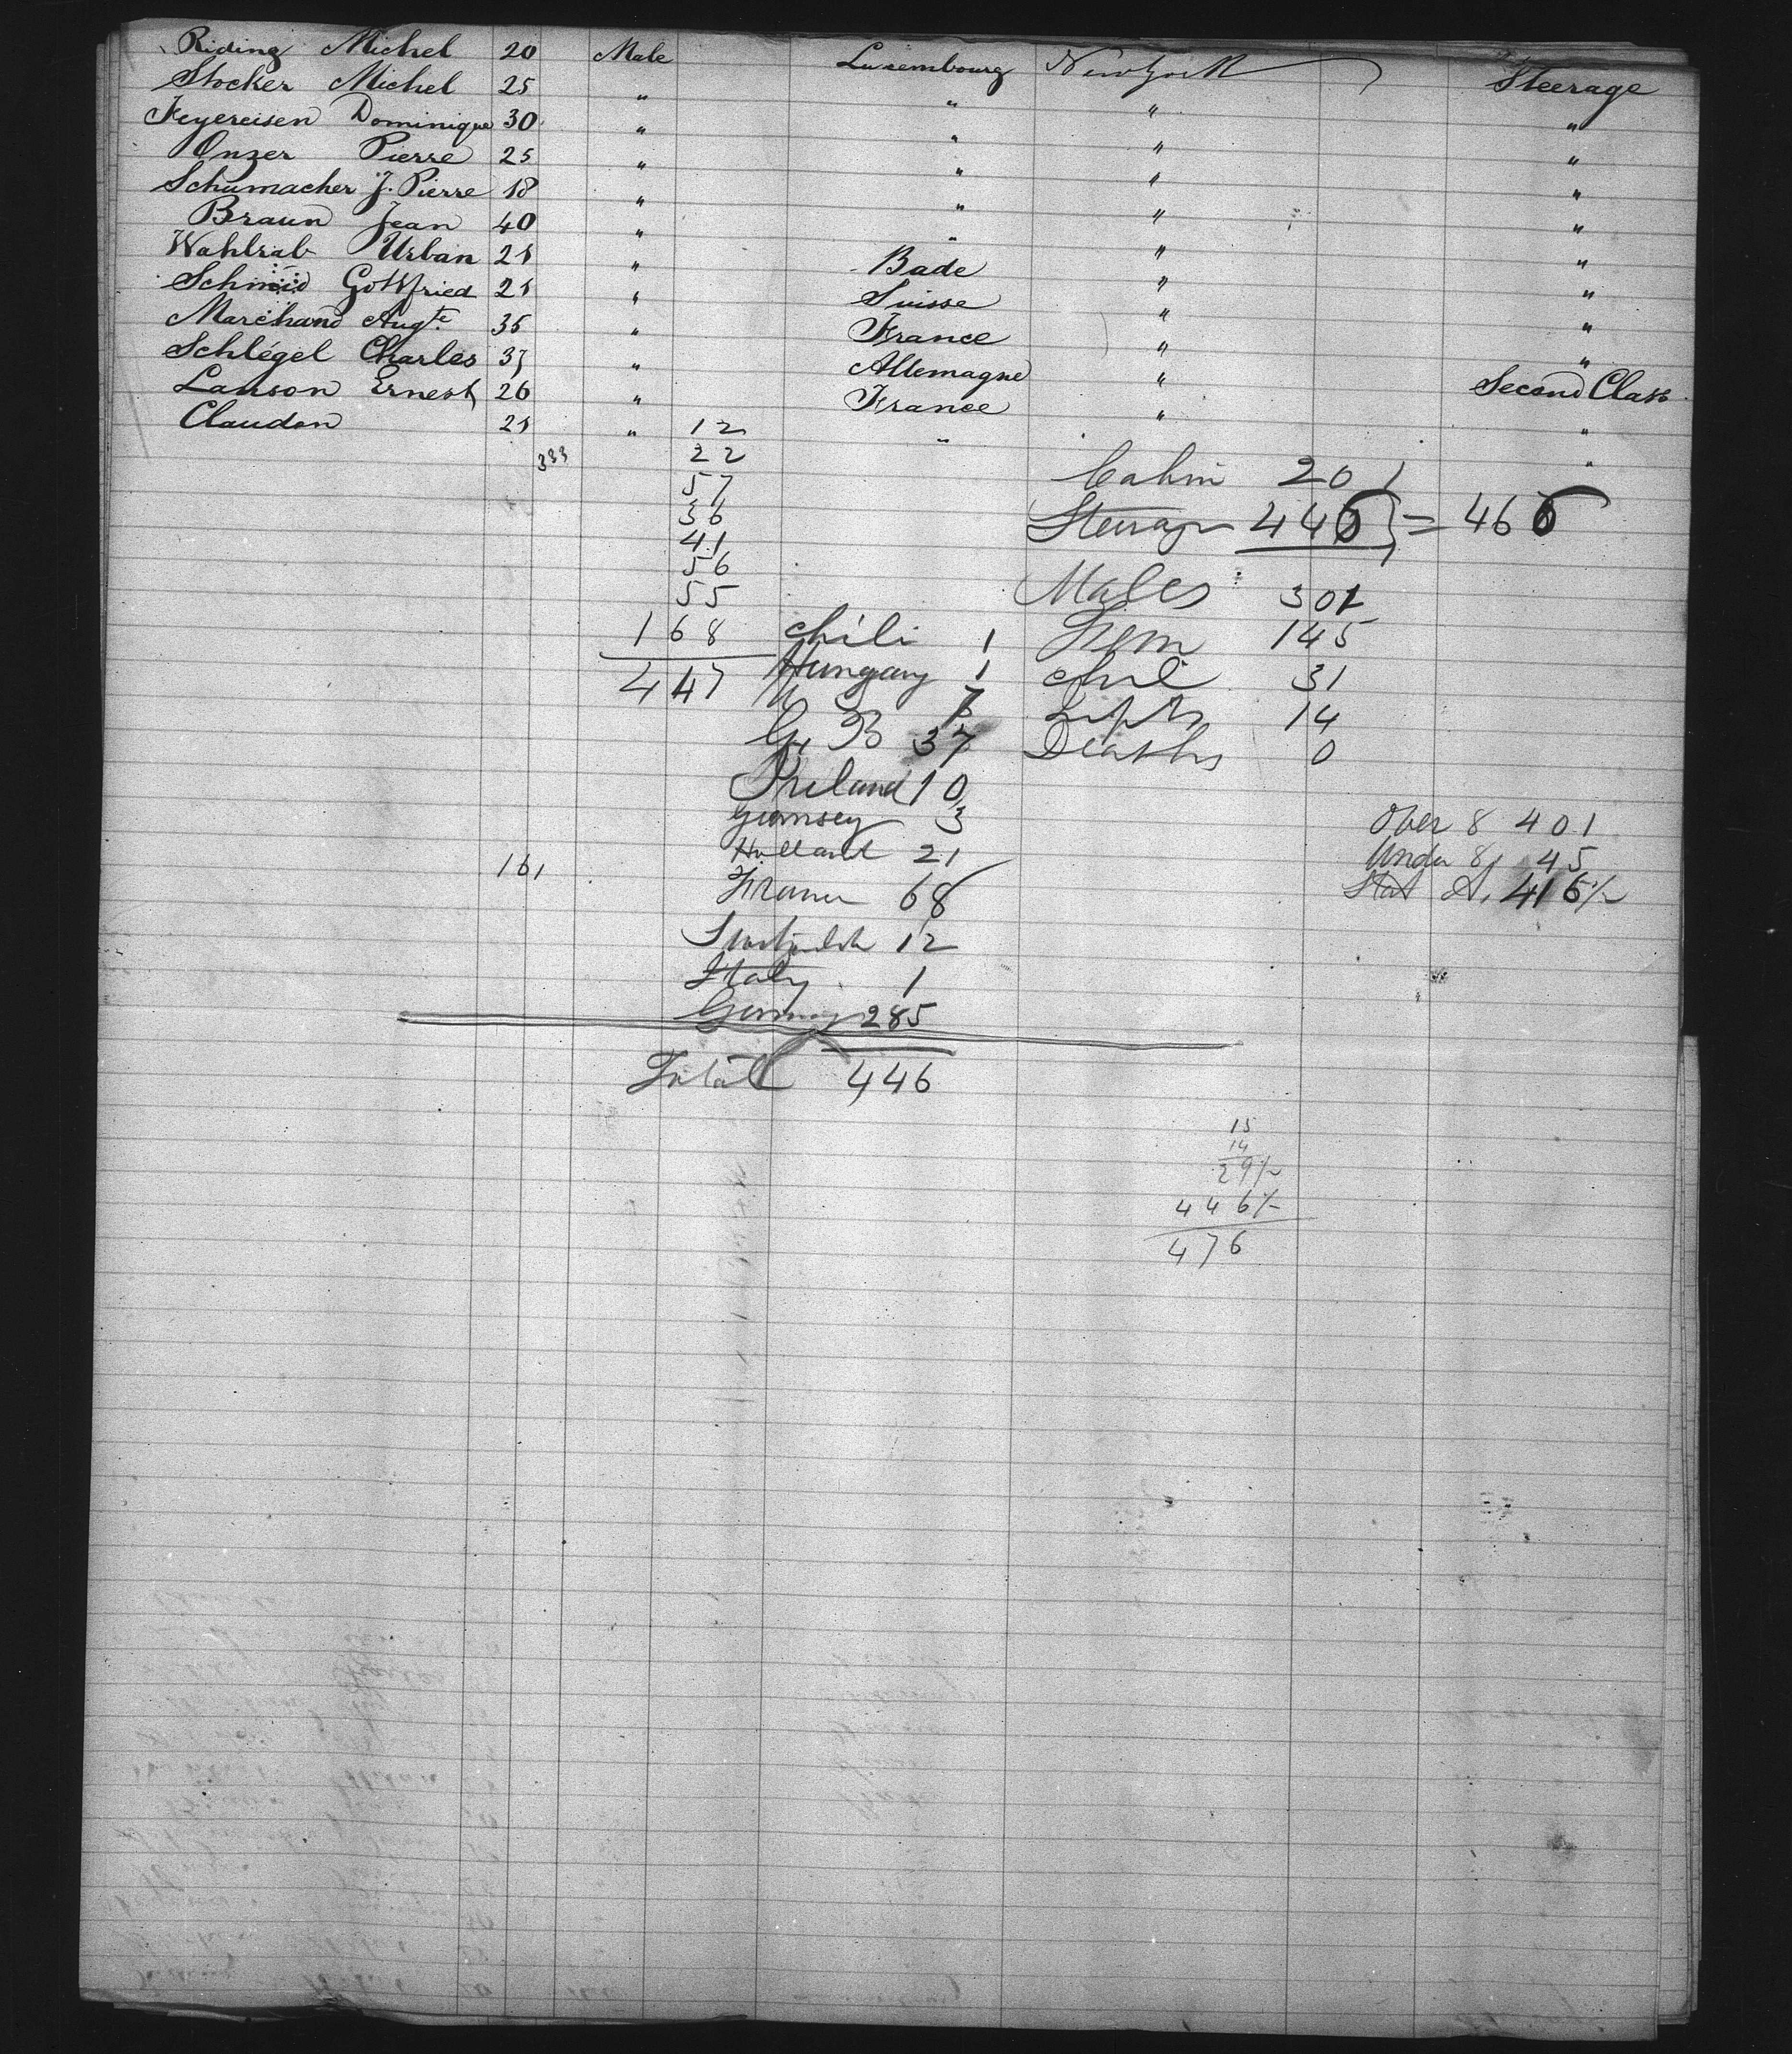 Riding Michel 20 Male Luxembourg New York Steerage
Stocker Michel 25 " " " "
Feyereisen Dominique 30 " " " "
Onzer Pierre 25 " " " "
Schumacher J. Pierre 18 " " " "
Braun Jean 40 " " " "
Wahlrab Urban 25 " Bade " "
Schmid Gottfried 25 " Suisse " "
Marchand Augte 35 " France " "
Schlégel Charles 37 " Allemagne " Second Class
Lanson Ernest 26 " France " "
Claudon 25 " " " "
12
333 22
57
36
41
56
55
168
447
Cabin 20
Steerage 446 = 466
Males 301
Fem 145
Chil 31
Infts 14
Deaths 0
Chili 1
Hungary 1
G B 37
Ireland 10
Guernsey 3
Holland 21
161
France 68
Switzerld 12
Italy 1
Germany 285
Total 446
Over 8 401
Under 8 45
Stat A. 416
15
14
29
446
476